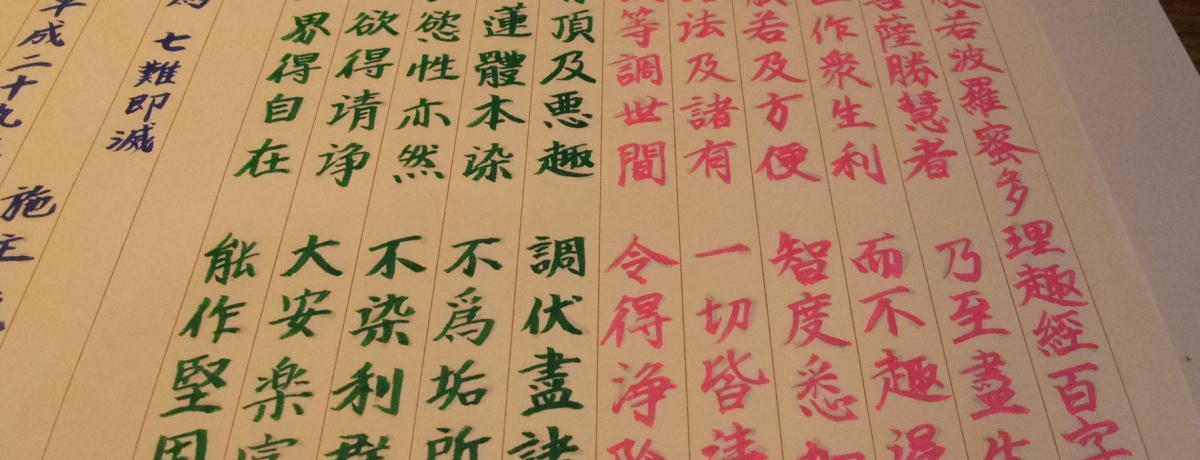 般若波羅蜜多理趣經百字
菩薩勝慧者 乃至盡生
作衆生利 而不趣涅
般若及方便 智度悉加
法及諸有 一切皆清
等調世間 令得净除
頂及悪趣 調伏盡諸
蓮體本染 不爲垢所
慾性亦然 不染利群
欲得请净 大安楽富
界得自在 能作堅固
七難即滅
平成二十九 施主